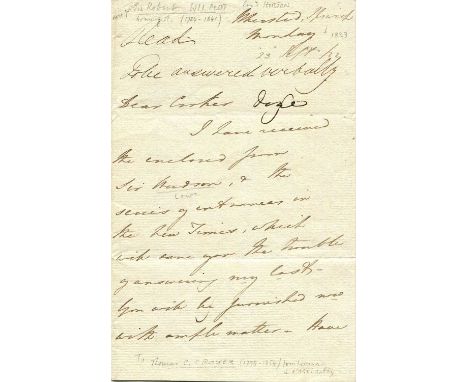 Sir Robert Wilmot Horton
Horton, Bt. (1784-1841)
Monday
1823
Read
23
To be answered verbally
Dear Croker done
I have received
the enclosed from
Sir Hudson, & the
Lowe
series of entrances in
the New Times, which
will save you the trouble
of answering my last -
You will be furnished now
with ample matter - Have
To Thomas C. CROKER (1798-1854)